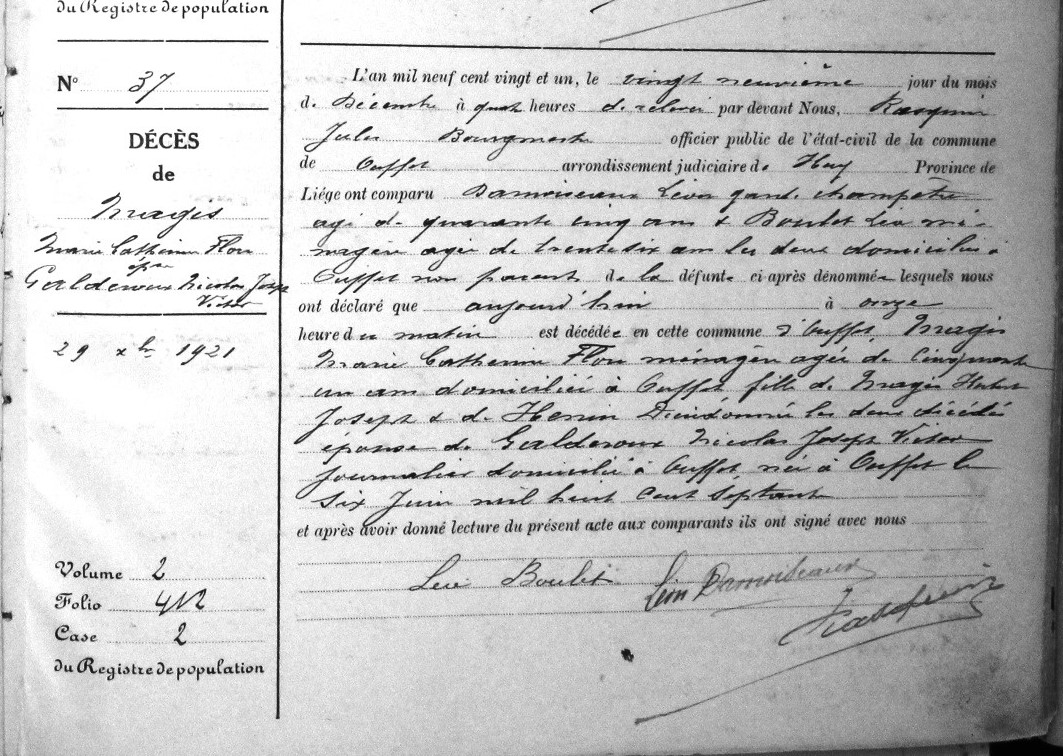 du Registre de population
N° 37
DÉCÈS
de
Magis
Marie Catherine Flore
épse
Galderoux Nicolas Joseph
Victor
29 xbre 1921
Volume 2
Folio 412
Case 2
du Registre de population
L'an mil neuf cent vingt et un, le vingt neuvième jour du mois
de Décembre à quatre heures de relevée par devant Nous,
Jules Bourgmestre officier public de l'état-civil de la commune
de Ouffet arrondissement judiciaire de Huy Province de
Liége ont comparu Damoiseaux Léon garde champêtre
agé de quarante cinq ans & Boulet Léa mé-
nagère agée de trente six ans les deux domiciliés à
Ouffet non parents de la défunte ci-après dénommée lesquels nous
ont déclaré que aujourd'hui à onze
heure du matin est décédée en cette commune d'Ouffet, Magis
Marie Catherine Flore ménagère agée de Cinquante
un ans domiciliée à Ouffet fille de Magis Hubert
Joseph & de Henin Dieudonnée les deux décédés
épouse de Galderoux Nicolas Joseph Victor
journalier domicilié à Ouffet née à Ouffet le
six Juin mil huit cent septante
et après avoir donné lecture du présent acte aux comparants ils ont signé avec nous
Boulet Léon Damoiseaux